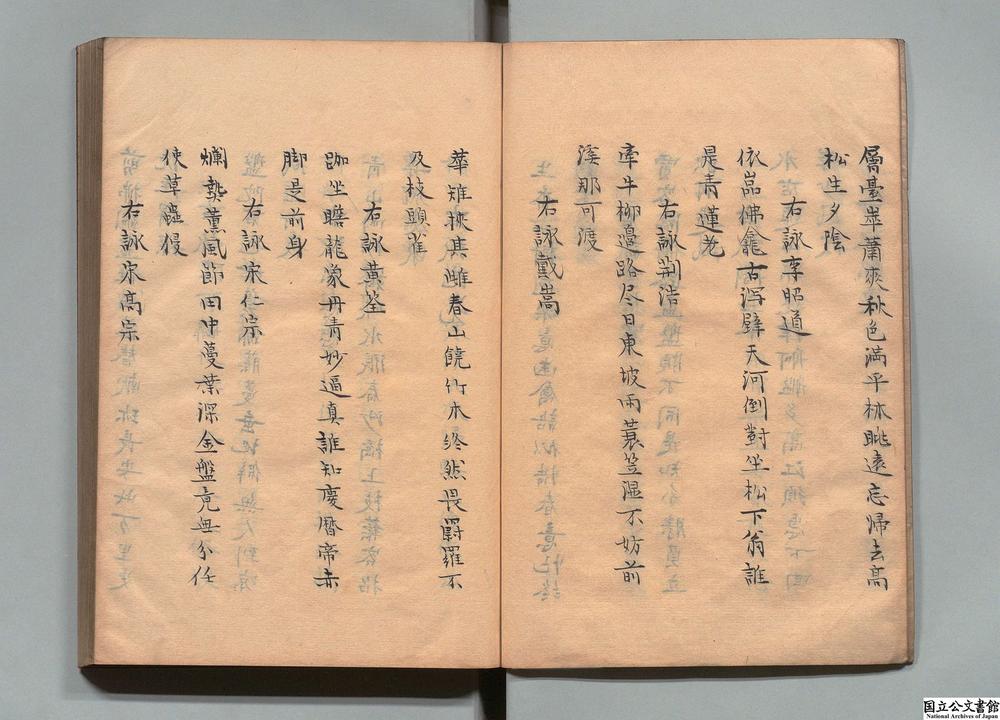 層臺崒蕭爽秋色滿平林眺遠忘歸去高
松生夕陰
右詠李昭道
依嵓佛龕古瀉壁天河倒對坐松下翁誰
是青蓮老
右詠荊浩
牽牛柳邊路尽日東坡雨蓑笠濕不妨前
溪那可渡
右詠戴嵩
華雉挾其雌春山饒竹木終然畏罻羅不
及枝頭雀
右詠黃筌
跏坐瞻龍象丹青妙逼真誰知慶曆帝赤
脚是前身
右詠宋仁宗
爛熳薰風節田中蔓葉深金盤竟無分任
使草蟲侵
右詠宋高宗
国立公文書館
National Archives of Japan